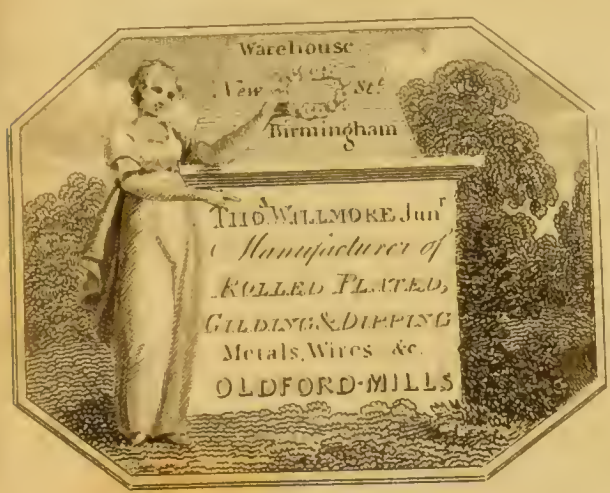 Warehouse
New St.
Birmingham
Thos. WILLMORE Junr
Manufacturer of
ROLLED PLATED,
GILDING & DIPPING
Metals, Wires &c.
OLDFORD-MILLS